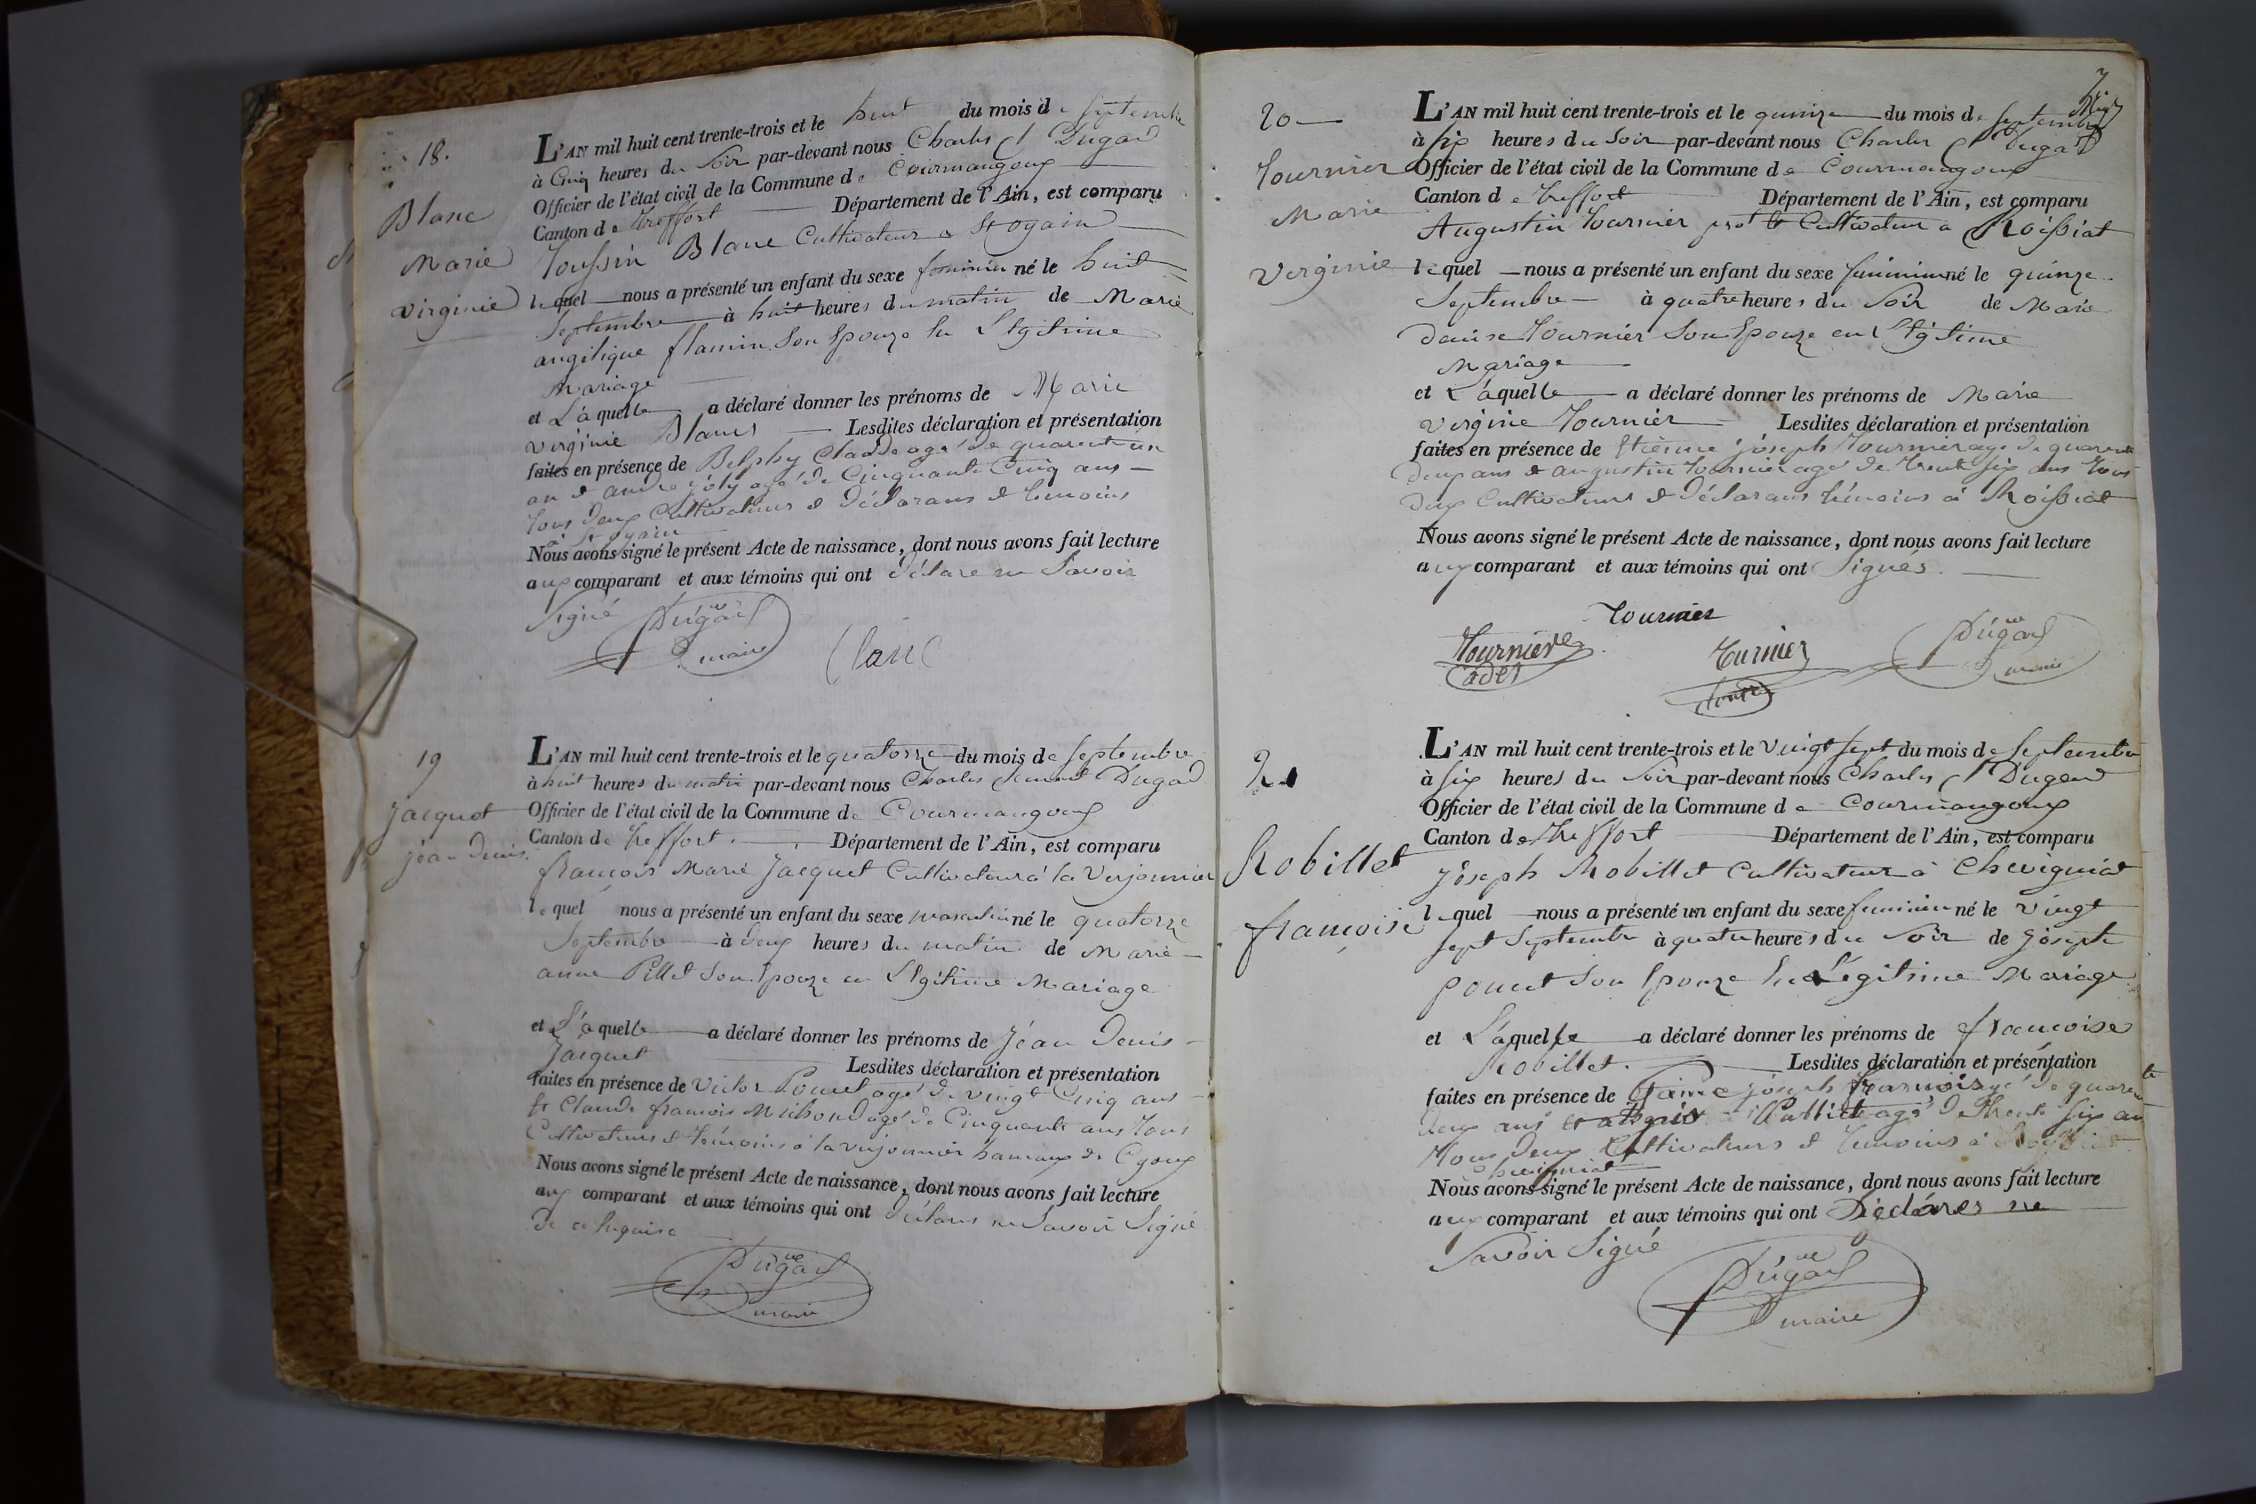 18.
Blanc
Marie
virginie
L'AN mil huit cent trente-trois et le huit du mois de Septembre
à Cinq heures du Soir par-devant nous Charles Ct Dugad
Officier de l'état civil de la Commune de Courmangoux
Canton de treffort Département de l'Ain, est comparu
toussin Blanc Cultivateur a St oyain
lequel nous a présenté un enfant du sexe feminin né le huit
Septembre à huit heures du matin de Marie
angelique flamin Son Epouze en Legitime
Mariage
et Laquelle a déclaré donner les prénoms de Marie
virginie Blanc Lesdites déclaration et présentation
faites en présence de Belphy Claude agé de quarent un
an & andre joly agé de Cinquante Cinq ans
tous deux Cultivateurs & déclarans & temoins
a St oyain
Nous avons signé le présent Acte de naissance, dont nous avons fait lecture
aux comparant et aux témoins qui ont déclare ne Savoir
Signé
Dugad
maire
19
jacquet
jean denis
L'AN mil huit cent trente-trois et le quatorze du mois de Septembre
à huit heures du matin par-devant nous Charles Clement Dugad
Officier de l'état civil de la Commune de Courmangoux
Canton de treffort. Département de l'Ain, est comparu
françois Marie Jacquet Cultivateur á la verjonnier
lequel nous a présenté un enfant du sexe masculin né le quatorze
Septembre à deux heures du matin de Marie
anne Pillet Son Epouze en Legitime Mariage
et Laquelle a déclaré donner les prénoms de jéan Denis
Jacquet Lesdites déclaration et présentation
faites en présence de victor Poncet agé de vingt Cinq ans
& Claude françois Michon agé de Cinquante ans tous
Cultivateurs & témoins á la verjonnier hameaux de Cgoux
Nous avons signé le présent Acte de naissance, dont nous avons fait lecture
aux comparant et aux témoins qui ont déclares ne Savoir Signé
de ce Requise
Dugad
maire
20
tournier
Marie
virginie
L'AN mil huit cent trente-trois et le quinze du mois de Septembre
à Six heures du Soir par-devant nous Charles Ct Dugad
Officier de l'état civil de la Commune de Courmangoux
Canton de treffort Département de l'Ain, est comparu
Augustin tournier Cultivateur a Roissiat
lequel nous a présenté un enfant du sexe feminin né le quinze
Septembre à quatre heures du Soir de Marie
denise tournier Son Epouze en Légitime
Mariage
et Láquelle a déclaré donner les prénoms de Marie
virgine tournier Lesdites déclaration et présentation
faites en présence de Etienne jóseph tournier age de quarente
deux ans & augustin tournier agé de trent Six ans tous
deux Cultivateurs & déclarans témoins á Roissiat
Nous avons signé le présent Acte de naissance, dont nous avons fait lecture
aux comparant et aux témoins qui ont Signés.
tournier
tourniere
cadet
tournier
Dugad
maire
21
Robillet
françoise
L'AN mil huit cent trente-trois et le vingt Sept du mois de Septembre
à Six heures du Soir par-devant nous Charles Ct Dugad
Officier de l'état civil de la Commune de Courmangoux
Canton de treffort Département de l'Ain, est comparu
jóseph Robillet Cultivateur á Chevigniat
lequel nous a présenté un enfant du sexe feminin né le vingt
Sept Septembre à quatre heures du Soir de jósepte
poncet Son Epouze en Légitime Mariage
et Láquelle a déclaré donner les prénoms de françoise
Robillet. Lesdites déclaration et présentation
faites en présence de jóseph françois agé de quarente
deux ans et agé de trente Six ans
tous deux Cultivateurs & temoins á
Chevigniat
Nous avons signé le présent Acte de naissance, dont nous avons fait lecture
aux comparant et aux témoins qui ont Declárés ne
Savoir Signé
Dugad
maire